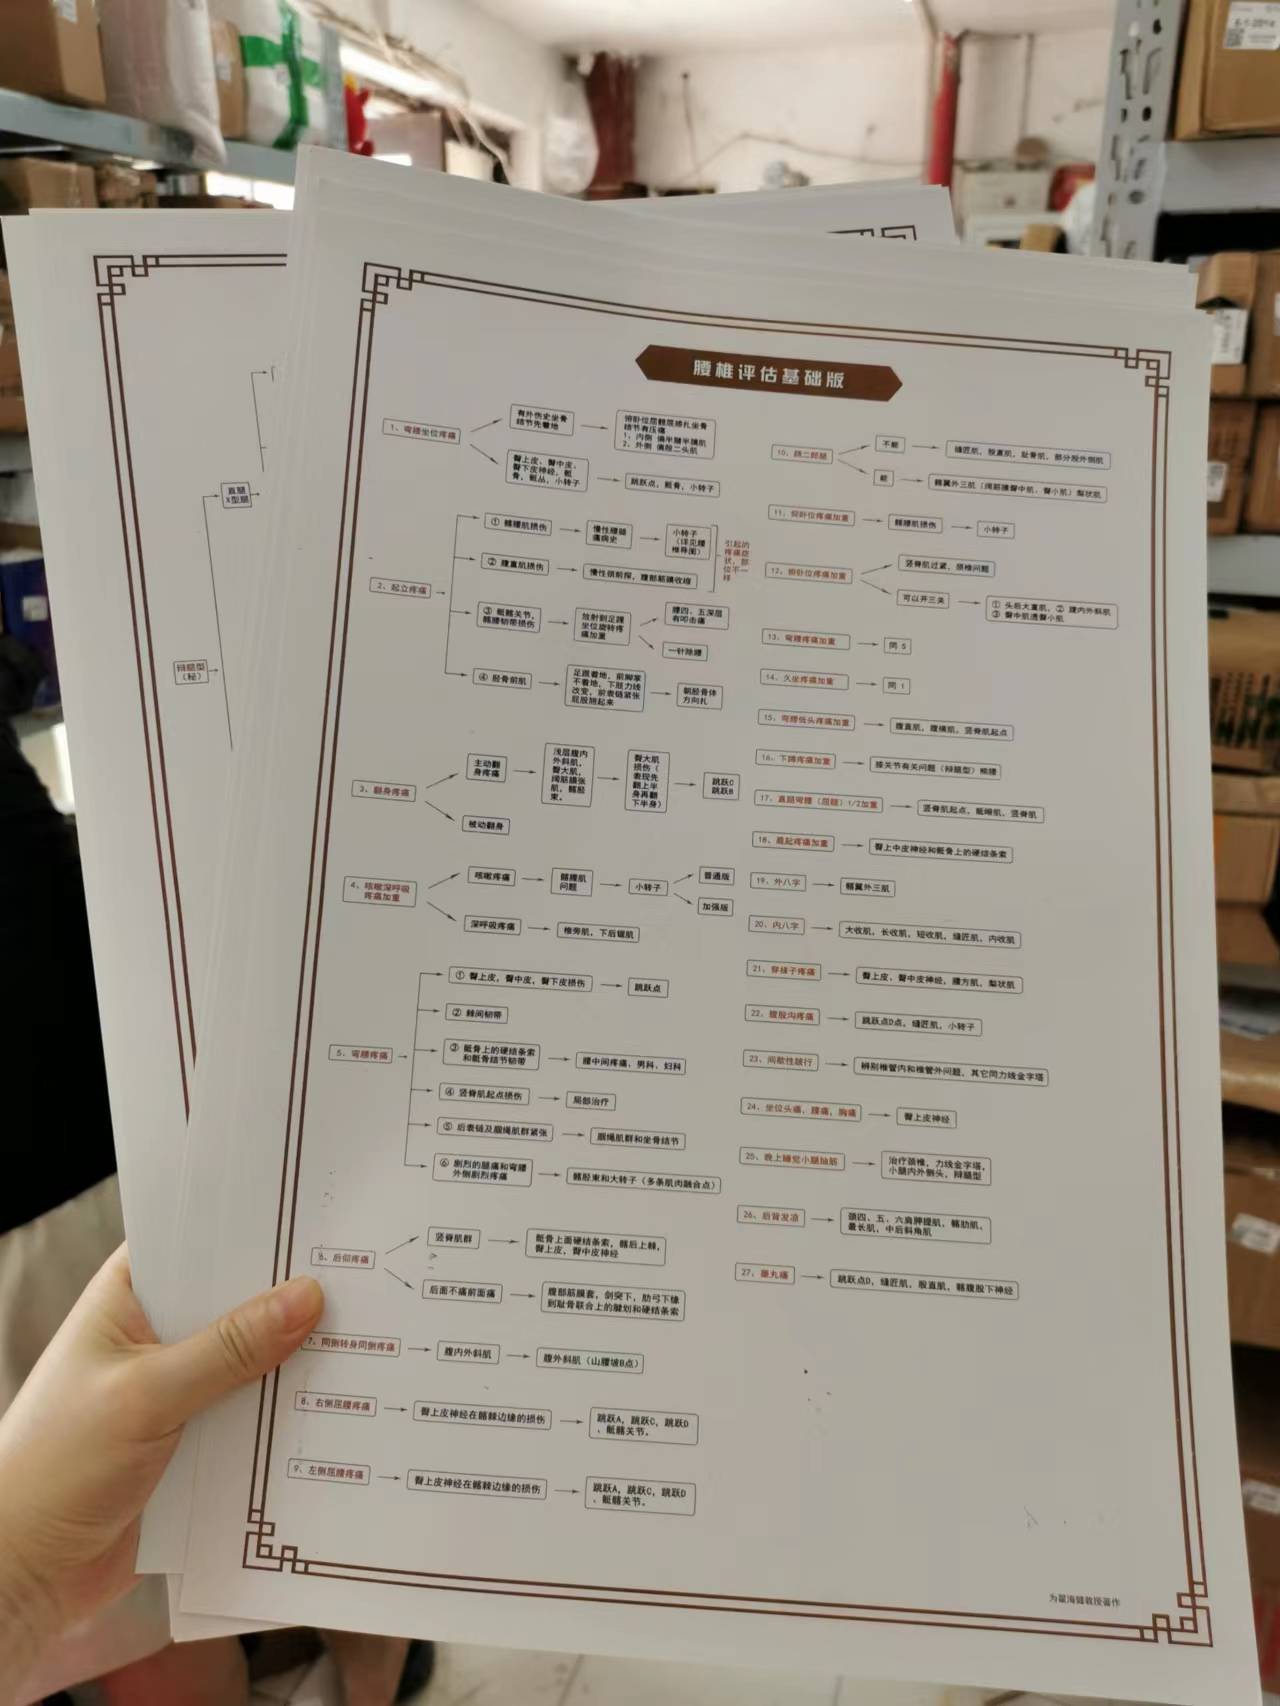 腰椎评估基础版
1、弯腰坐位疼痛
有外伤史坐骨
结节先着地
俯卧位屈髋屈膝扎坐骨
结节有压痛
1：内侧 偏半腱半膜肌
2、外侧 偏股二头肌
臀上皮、臀中皮，
臀下皮神经，骶
骨，骶丛，小转子
跳跃点，骶骨，小转子
2、起立疼痛
① 髂腰肌损伤
慢性腰肠
痛病史
小转子
（详见腰
椎导图）
② 腹直肌损伤
慢性颈前探，腹部筋膜收缩
引起的
疼痛症
状，部
位不一
样
③ 骶髂关节，
髂腰韧带损伤
放射到足踝
坐位旋转疼
痛加重
腰四、五深层
有叩击痛
一针除腰
④ 胫骨前肌
足跟着地，前脚掌
不着地，下肢力线
改变，前表链紧张
屁股翘起来
朝胫骨体
方向扎
3、翻身疼痛
主动翻
身疼痛
浅层腹内
外斜肌，
臀大肌，
阔筋膜张
肌，髂胫
束。
臀大肌
损伤（
表现先
翻上半
身再翻
下半身）
跳跃C
跳跃B
被动翻身
4、咳嗽深呼吸
疼痛加重
咳嗽疼痛
髂腰肌
问题
小转子
普通版
加强版
深呼吸疼痛
椎旁肌，下后锯肌
5、弯腰疼痛
① 臀上皮，臀中皮，臀下皮损伤
跳跃点
② 棘间韧带
③ 骶骨上的硬结条索
和骶骨结节韧带
腰中间疼痛，男科，妇科
④ 竖脊肌起点损伤
局部治疗
⑤ 后表链及腘绳肌群紧张
腘绳肌群和坐骨结节
⑥ 剧烈的腿痛和弯腰
外侧剧烈疼痛
髂胫束和大转子（多条肌肉融合点）
6、后仰疼痛
竖脊肌群
骶骨上面硬结条索，髂后上棘，
臀上皮，臀中皮神经
后面不痛前面痛
腹部筋膜套，剑突下，肋弓下缘
到耻骨联合上的腱划和硬结条索
7、同侧转身同侧疼痛
腹内外斜肌
腹外斜肌（山腰坡B点）
8、右侧屈腰疼痛
臀上皮神经在髂棘边缘的损伤
跳跃A，跳跃C，跳跃D
、骶髂关节。
9、左侧屈腰疼痛
臀上皮神经在髂棘边缘的损伤
跳跃A，跳跃C，跳跃D
、骶髂关节。
10、跷二郎腿
不能
缝匠肌，股直肌，耻骨肌，部分股外侧肌
能
髂翼外三肌（阔筋膜臀中肌、臀小肌）梨状肌
11、仰卧位疼痛加重
髂腰肌损伤
小转子
12、俯卧位疼痛加重
竖脊肌过紧，颈椎问题
可以开三关
① 头后大直肌，② 腹内外斜肌
③ 臀中肌透臀小肌
13、弯腰疼痛加重
同 5
14、久坐疼痛加重
同 1
15、弯腰低头疼痛加重
腹直肌，腹横肌，竖脊肌起点
16、下蹲疼痛加重
膝关节有关问题（辩腿型）熊腰
17、直腿弯腰（屈髋）1/2加重
竖脊肌起点，骶嵴肌，竖脊肌
18、晨起疼痛加重
臀上中皮神经和骶骨上的硬结条索
19、外八字
髂翼外三肌
20、内八字
大收肌，长收肌，短收肌，缝匠肌，内收肌
21、穿袜子疼痛
臀上皮、臀中皮神经，腰方肌，梨状肌
22、腹股沟疼痛
跳跃点D点，缝匠肌，小转子
23、间歇性跛行
辨别椎管内和椎管外问题，其它同力线金字塔
24、坐位头痛、腰痛，胸痛
臀上皮神经
25、晚上睡觉小腿抽筋
治疗颈椎，力线金字塔，
小腿内外侧头，辩腿型
26、后背发凉
颈四、五、六肩胛提肌，髂肋肌，
最长肌，中后斜角肌
27、睾丸痛
跳跃点D，缝匠肌，股直肌，髂腹股下神经
直腿
X型腿
辩腿型
（秘）